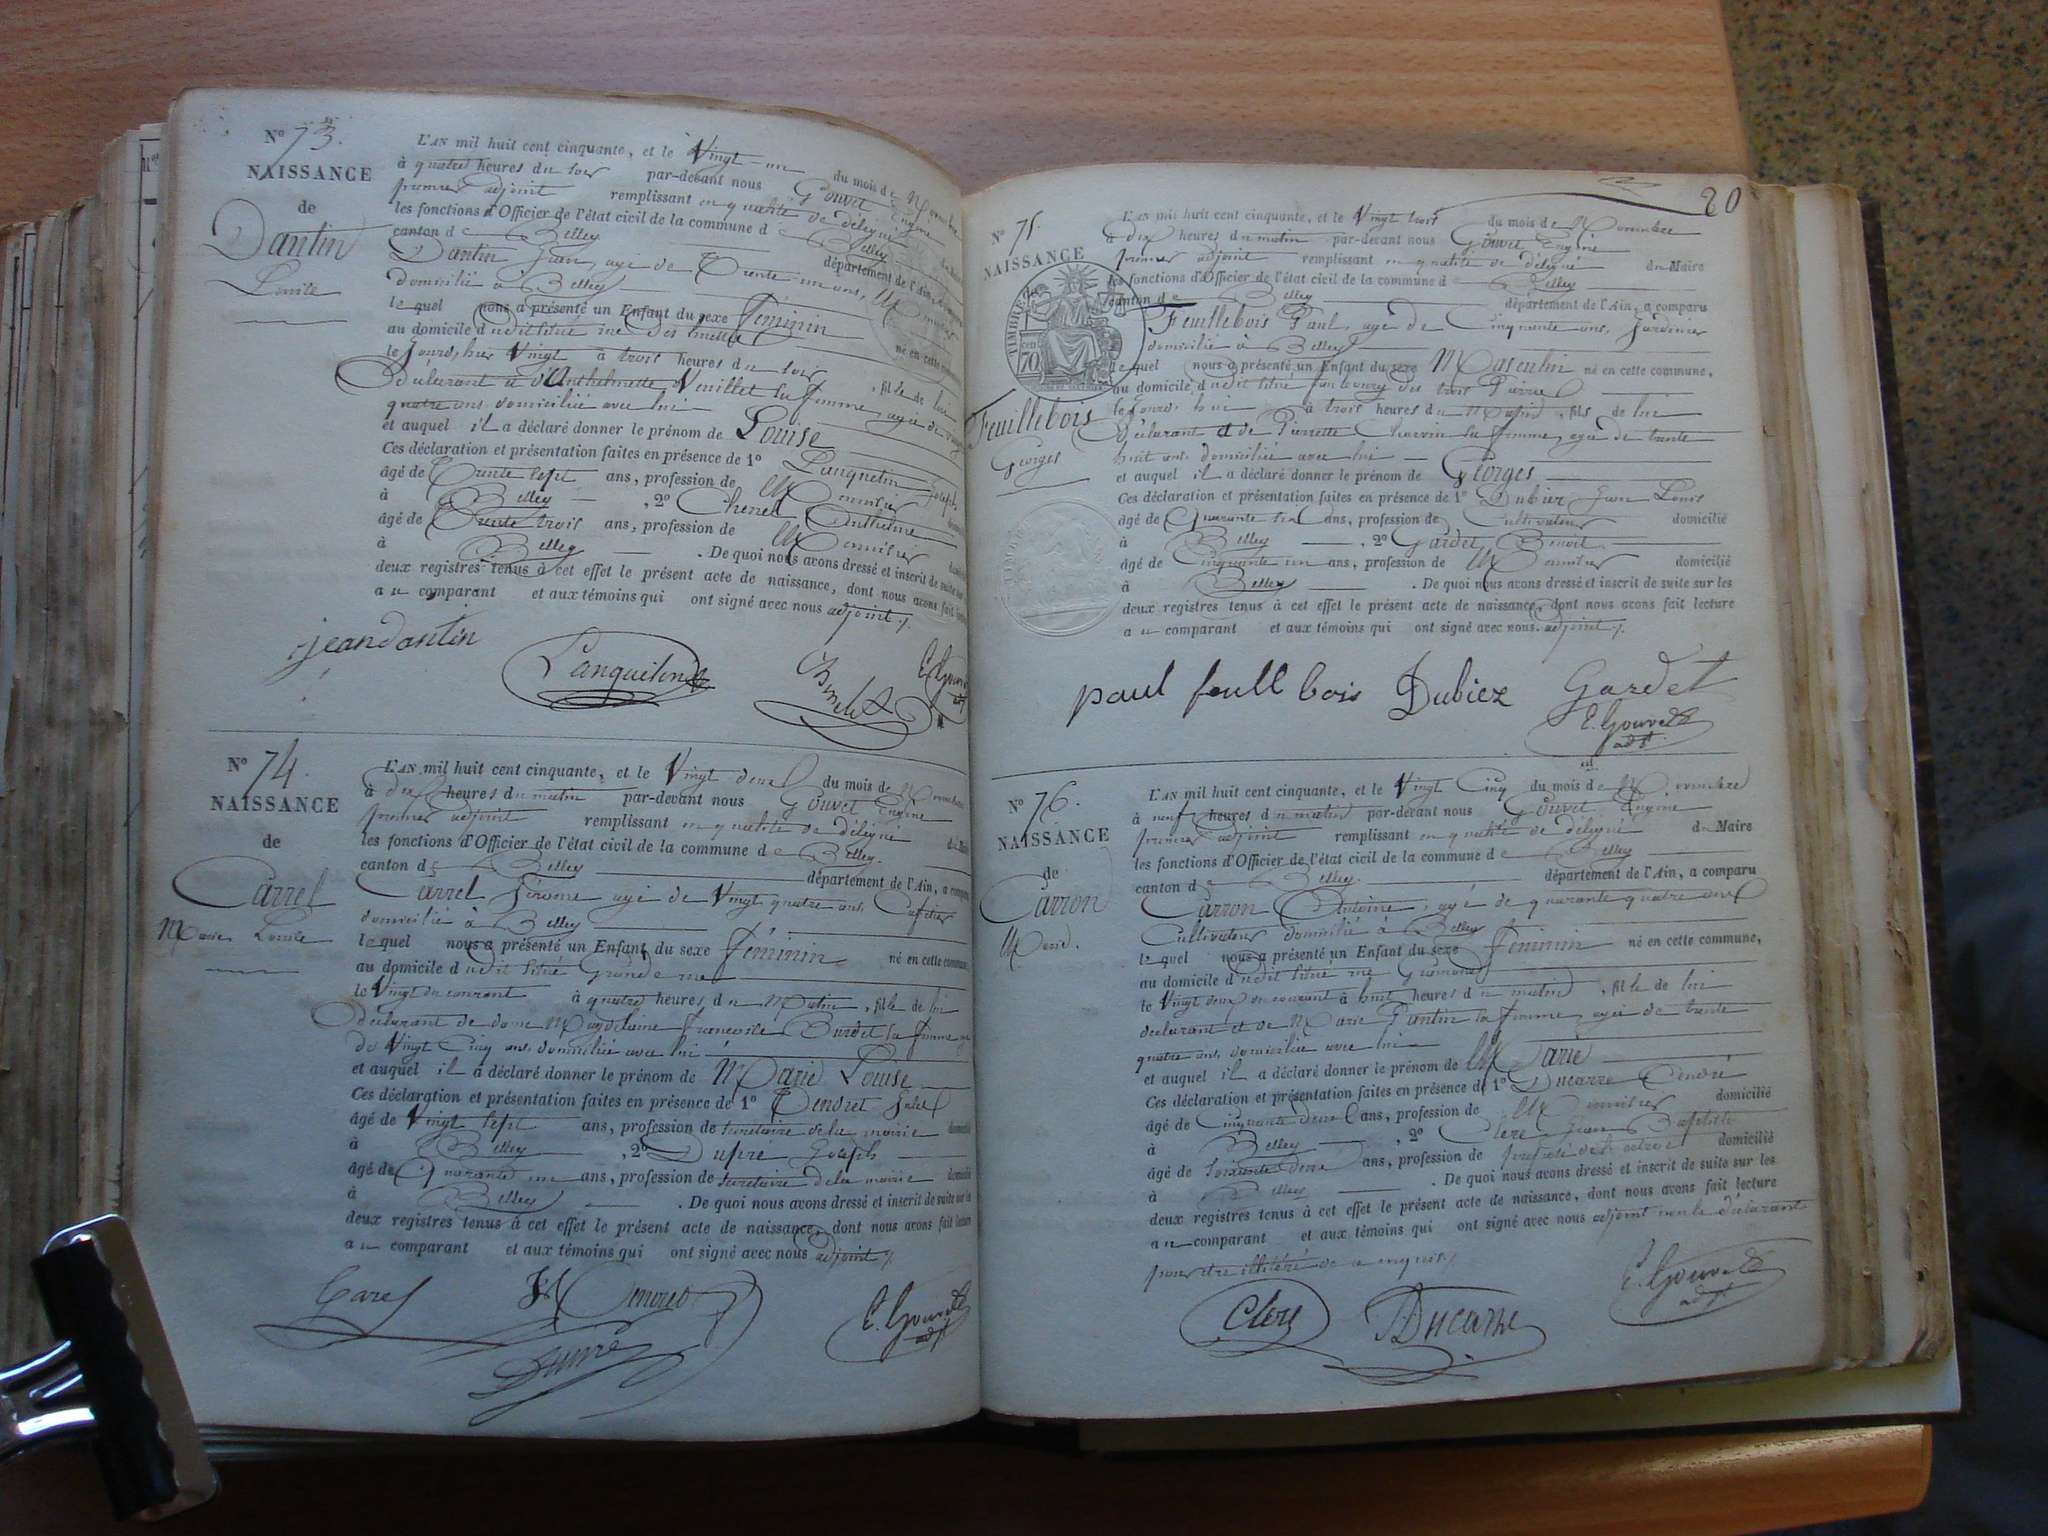 N° 73.
NAISSANCE
de
Dantin
Louise
L'AN mil huit cent cinquante, et le Vingt-un du mois de Novembre
à quatre heures du soir par-devant nous Gouvet Eugène
premier adjoint remplissant en qualité de délégué
les fonctions d'Officier de l'état civil de la commune de Belley
canton de Belley département de l'Ain, a comparu
Dantin Jean, agé de Trente-un ans,
domicilié à Belley
le quel nous a présenté un Enfant du sexe féminin né en cette commune
au domicile dudit situé rue des
le jourd'hier Vingt à trois heures du soir, fille de lui
déclarant et d'Anthelmette Veuillet sa femme, agée de vingt
quatre ans domiciliée avec lui
et auquel il a déclaré donner le prénom de Louise
Ces déclaration et présentation faites en présence de 1° Lanquetin Joseph
âgé de Trente sept ans, profession de
à Belley, 2° Anthelme
âgé de Trente trois ans, profession de
à Belley. De quoi nous avons dressé et inscrit de suite sur
deux registres tenus à cet effet le présent acte de naissance, dont nous avons fait lecture
au comparant et aux témoins qui ont signé avec nous adjoint
jean dantin
Lanquetin
E. Gouvet
adjt
N° 74.
NAISSANCE
de
Carrel
Marie Louise
L'AN mil huit cent cinquante, et le Vingt deux du mois de Novembre
à dix heures du matin par-devant nous Gouvet Eugène
premier adjoint remplissant en qualité de délégué du Maire
les fonctions d'Officier de l'état civil de la commune de Belley.
canton de Belley département de l'Ain, a comparu
Carrel Jérome agé de Vingt quatre ans, Cafetier
domicilié à Belley
lequel nous a présenté un Enfant du sexe féminin né en cette commune
au domicile dudit situé Grande rue
le Vingt du courant à quatre heures du Matin, fille de lui
déclarant de dame Magdelaine Françoise sa femme
de Vingt Cinq ans, domiciliée avec lui
et auquel il a déclaré donner le prénom de Marie Louise
Ces déclaration et présentation faites en présence de 1° Tendret
âgé de Vingt sept ans, profession de secrétaire de la mairie domicilié
à Belley, 2° Dupré Joseph
âgé de Quarante un ans, profession de secrétaire de la mairie domicilié
à Belley. De quoi nous avons dressé et inscrit de suite sur les
deux registres tenus à cet effet le présent acte de naissance, dont nous avons fait lecture
au comparant et aux témoins qui ont signé avec nous adjoint
Carrel
Tendret
Dupré
E. Gouvet
adjt
20
N° 75.
NAISSANCE
TIMBRE
70
Feuillebois
Georges
L'AN mil huit cent cinquante, et le Vingt trois du mois de Novembre
à dix heures du matin par-devant nous Gouvet Eugène
premier adjoint remplissant en qualité de délégué du Maire
les fonctions d'Officier de l'état civil de la commune de Belley
canton de Belley département de l'Ain, a comparu
Feuillebois Paul, agé de Cinquante ans, Jardinier
domicilié à Belley
le quel nous a présenté un Enfant du sexe Masculin né en cette commune,
au domicile dudit situé faubourg des trois Pierres
le jourd'hui à trois heures du Matin, fils de lui
déclarant et de Pierrette Charvin sa femme, agée de trente
huit ans domiciliée avec lui
et auquel il a déclaré donner le prénom de Georges
Ces déclaration et présentation faites en présence de 1° Dubiez Jean Louis
âgé de Quarante six ans, profession de Cultivateur domicilié
à Belley, 2° Gardet Benoit
âgé de Cinquante un ans, profession de domicilié
à Belley. De quoi nous avons dressé et inscrit de suite sur les
deux registres tenus à cet effet le présent acte de naissance, dont nous avons fait lecture
au comparant et aux témoins qui ont signé avec nous. adjoint
paul feull bois Dubiez Gardet
E. Gouvet
adjt
N° 76.
NAISSANCE
de
Carron
Marie.
L'AN mil huit cent cinquante, et le Vingt Cinq du mois de Novembre
à neuf heures du matin par-devant nous Gouvet Eugène
premier adjoint remplissant en qualité de délégué du Maire
les fonctions d'Officier de l'état civil de la commune de Belley
canton de Belley. département de l'Ain, a comparu
Carron Antoine, agé de quarante quatre ans
Cultivateur domicilié à Belley
le quel nous a présenté un Enfant du sexe féminin né en cette commune,
au domicile dudit situé rue
le Vingt deux du courant à huit heures du matin, fille de lui
déclarant et de Marie Pantin sa femme, agée de trente
quatre ans, domiciliée avec lui
et auquel il a déclaré donner le prénom de Marie
Ces déclaration et présentation faites en présence de 1° Ducarre André
âgé de Cinquante deux ans, profession de domicilié
à Belley, 2° Clerc Jean Baptiste
âgé de soixante deux ans, profession de préposé de l'octroi domicilié
à Belley. De quoi nous avons dressé et inscrit de suite sur les
deux registres tenus à cet effet le présent acte de naissance, dont nous avons fait lecture
au comparant et aux témoins qui ont signé avec nous adjoint non le déclarant
pour être illitéré de ce enquis
Clerc
Ducarre
E. Gouvet
adjt